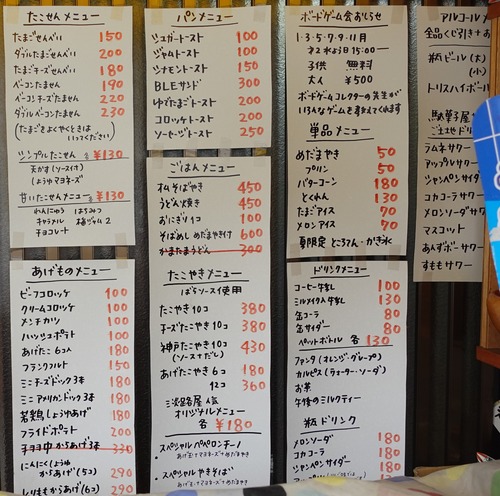 たこせんメニュー
たまごせんべい 150
ダブルたまごせんべい 200
たまごチーズせんべい 180
ベーコンたません 190
ベーコンチーズたません 220
ダブルベーコンたません 230
(たまごをよくやくときは
いってください)
シンプルたこせん 各¥130
天かす(ソースイカ)
(しょうゆマヨネーズ
甘いたこせんメニュー 各¥130
れんにゅう はちみつ
キャラメル 梅ジャム2
チョコレート
パンメニュー
シュガートースト 100
ジャムトースト 100
シナモントースト 150
BLEサンド 300
ゆでたまごトースト 200
コロッケトースト 200
ソーセージトースト 250
ごはんメニュー
オムそばやき 450
うどん焼き 450
おにぎり1コ 100
そばめし めだまやき付 600
かまたまうどん 300
ボードゲーム会おしらせ
1・3・5・7・9・11月
第2水よう日15:00ー
子供 無料
大人 ¥500
ボードゲームコレクターの先生が
いろんなゲームを教えてくれます
単品メニュー
めだまやき 50
プリン 50
バターコーン 180
とくれん 130
たまごアイス 70
メロンアイス 70
夏限定 ところてん・かき氷
アルコール
全品くじ引き
瓶ビール(大
(小)
トリスハイボール
駄菓子屋
ラムネサワー
アップルサワー
シャンペンサイダー
コカコーラサワー
メロンソーダサワー
マスコット
あんずボーサワー
すももサワー
あげものメニュー
ビーフコロッケ 100
クリームコロッケ 100
メンチカツ 100
ハッシュポテト 100
あげたこ6コ入 180
フランクフルト 150
ミニチーズドック3本 180
ミニアメリカンドック3本 180
若鶏(しょうゆ)あげ 180
フライドポテト 200
からあげ3本 330
にんにくしょうゆ
からあげ(5コ) 290
しおももからあげ(6コ) 290
たこやきメニュー
ばらソース使用
たこやき10コ 380
チーズたこやき10コ 380
神戸たこやき10コ 430
(ソースすだし)
あげたこやき6コ 180
12コ 360
三淡路屋人気
オリジナルメニュー
各¥180
・スペシャルペペロンチーノ
・スペシャルやきそば
ドリンクメニュー
コーヒー牛乳 100
ミルメイク入牛乳 130
缶コーラ 80
缶サイダー 80
ペットボトル各 130
ファンタ(オレンジ・グレープ)
カルピス(ウォーター・ソーダ)
お茶
午後のミルクティー
瓶ドリンク
メロンソーダ 180
コカコーラ 180
シャンペンサイダー 180